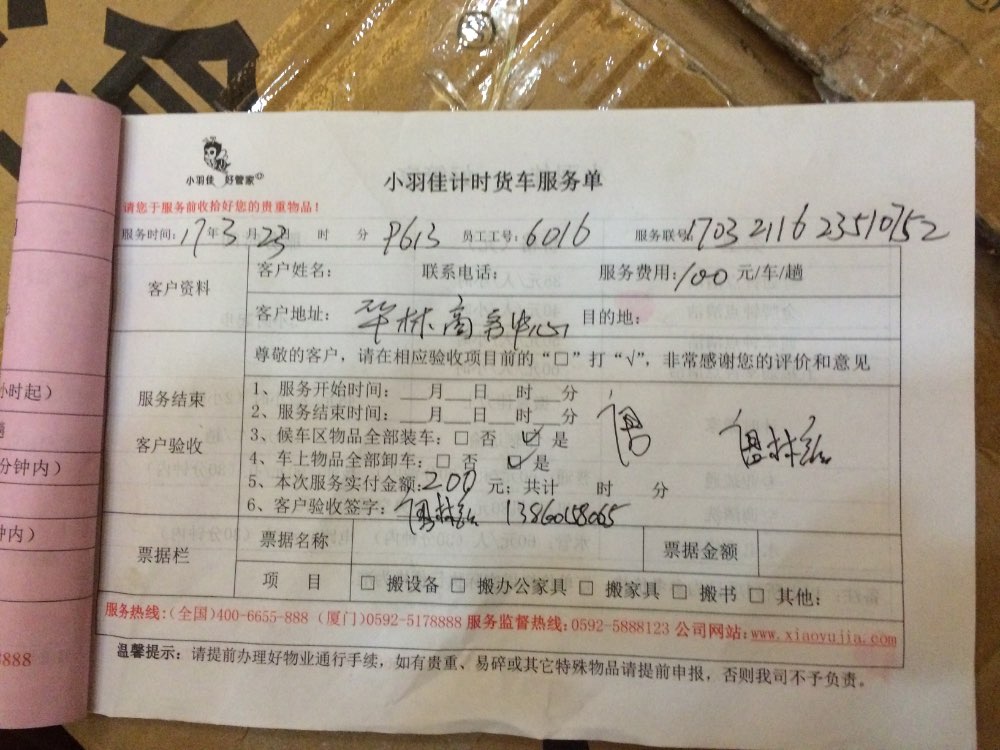 小羽佳 好管家
小羽佳计时货车服务单
请您于服务前收拾好您的贵重物品!
服务时间: 17年3月23日 时 分 9613 员工工号: 6016 服务联号: 1703211623510752
客户资料
客户姓名: 联系电话: 服务费用: 100 元/车/趟
客户地址: 华林商务中心 目的地:
服务结束
客户验收
尊敬的客户,请在相应验收项目前的“□”打“√”,非常感谢您的评价和意见
1、服务开始时间: ___月___日___时___分
2、服务结束时间: ___月___日___时___分
3、候车区物品全部装车: □ 否 ☑ 是
4、车上物品全部卸车: □ 否 ☑ 是
5、本次服务实付金额: 200 元; 共计 时 分
6、客户验收签字: 13860158065
票据栏
票据名称 票据金额
项 目 □ 搬设备 □ 搬办公家具 □ 搬家具 □ 搬书 □ 其他:
服务热线:(全国)400-6655-888 (厦门)0592-5178888 服务监督热线:0592-5888123 公司网站:www.xiaoyujia.com
温馨提示: 请提前办理好物业通行手续,如有贵重、易碎或其它特殊物品请提前申报,否则我司不予负责。
小时起)
分钟内)
钟内)
888